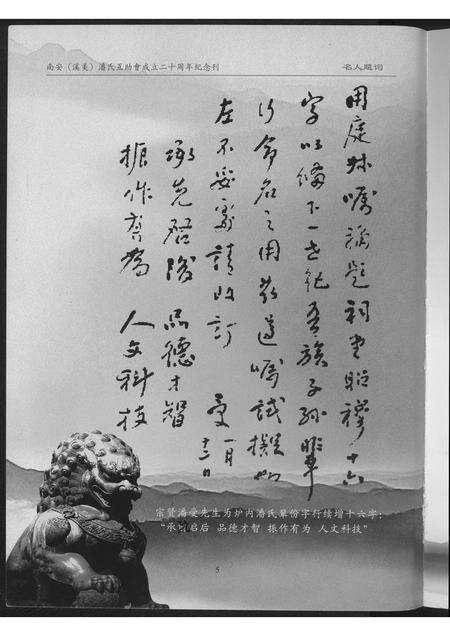 南安（溪美）潘氏互助會成立二十周年纪念刊
名人題詞
用庭妹嘱題祠堂昭穆十六
字以備下一世紀吾族子孫
行命名之用敬遵嘱試撰如
左不妥處請改訂 受 一月十二日
承先啓後 品德才智
振作有為 人文科技
宗贤潘受先生为炉内潘氏辈份字行续增十六字：
“承先启后 品德才智 振作有为 人文科技”
5